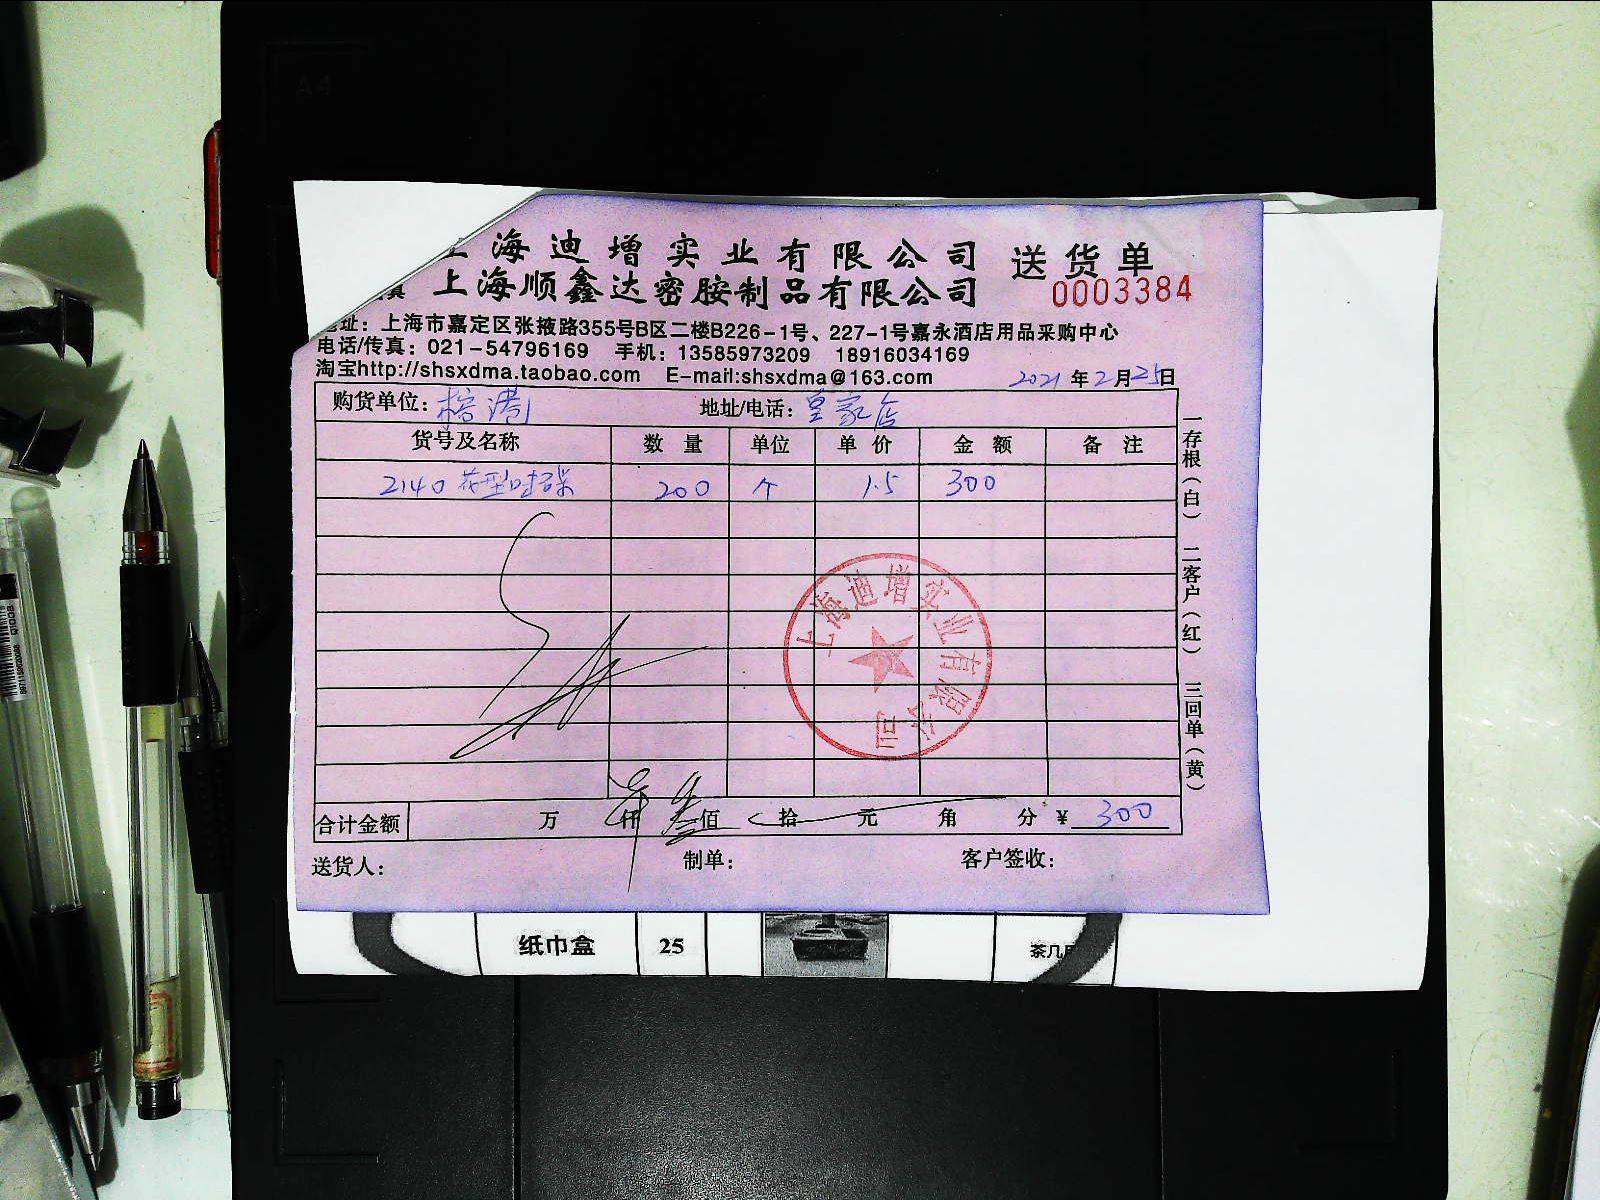 上海迪增实业有限公司 送货单
上海顺鑫达密胺制品有限公司 0003384
地址：上海市嘉定区张掖路355号B区二楼B226-1号、227-1号嘉永酒店用品采购中心
电话/传真：021-54796169 手机：13585973209 18916034169
淘宝http://shsxdma.taobao.com E-mail:shsxdma@163.com
2021年2月25日
购货单位：榕港 地址/电话：皇家店
货号及名称 数量 单位 单价 金额 备注
2140 花型味碟 200 个 1.5 300
上海迪增实业有限公司
合计金额 万 仟 叁佰 拾 元 角 分 ¥ 300
送货人： 制单： 客户签收：
一存根（白） 二客户（红） 三回单（黄）
纸巾盒 25 茶几
A4